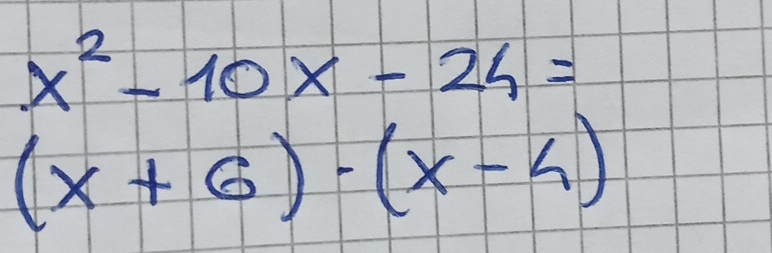 x² - 10x - 24 =
(x + 6) · (x - 4)